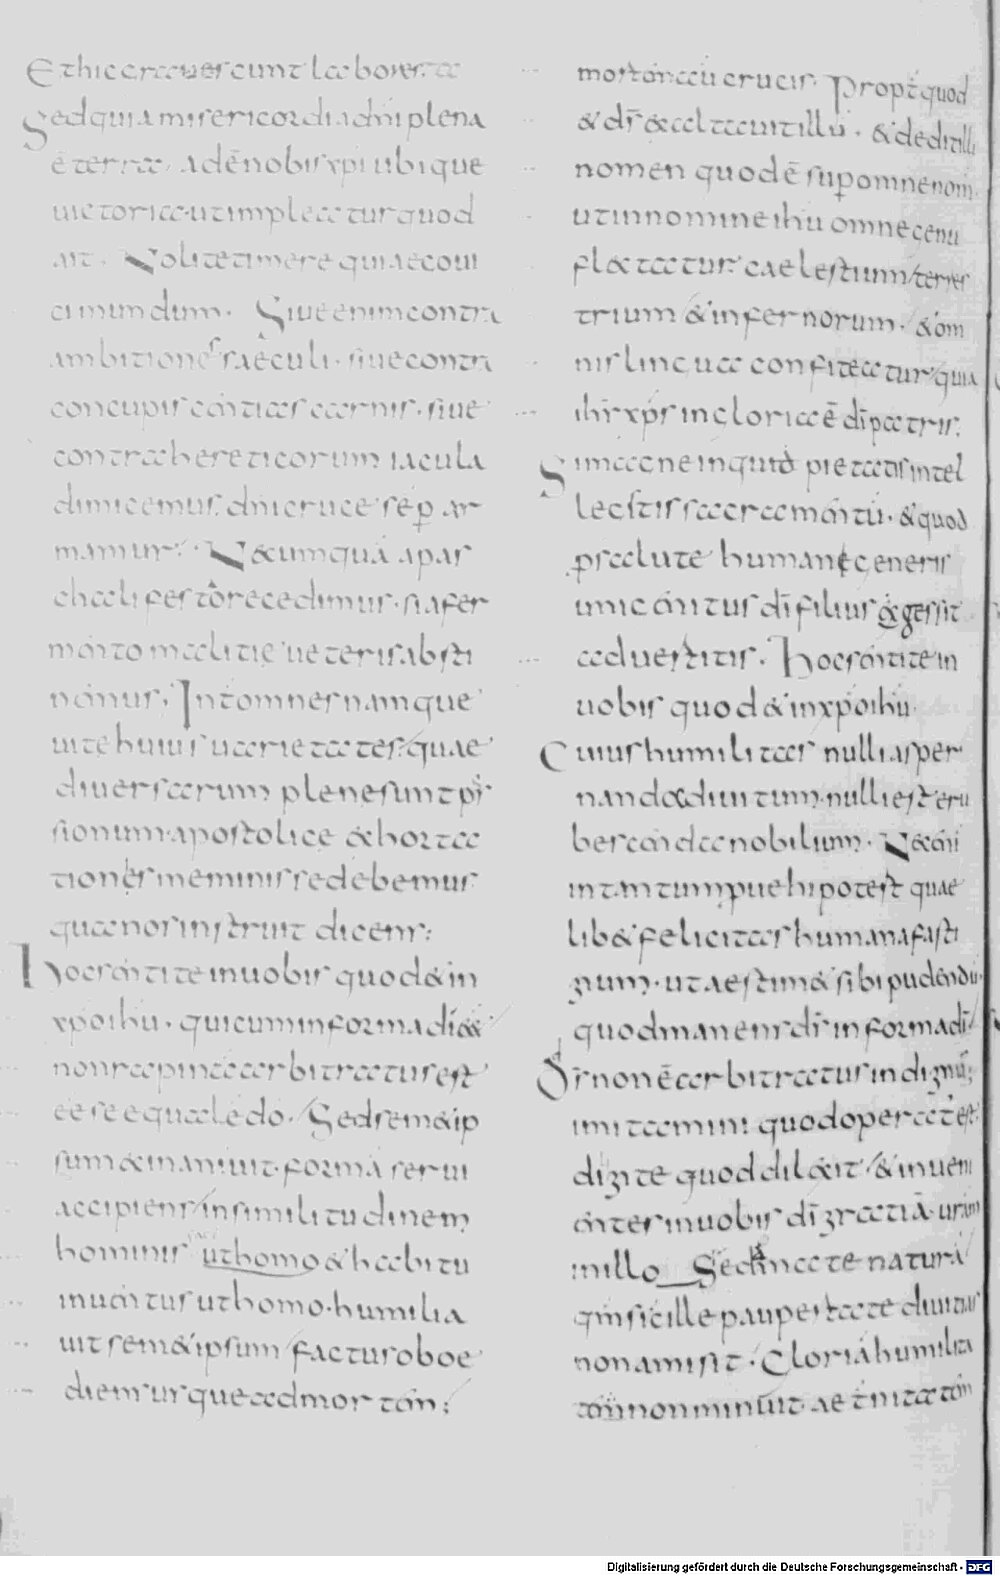 Et hic graues sunt labores. ea
Sed quia misericordia dn̄i plena
ē terra, adē nobis xp̄i ubique
uictoria. ut impleatur quod
ait. Nolite timere quia ego ui
ci mundum. Siue enim contra
ambitiones saeculi. siue contra
concupiscentias carnis. siue
contra hereticorum iacula
dimicemus. dn̄i cruce sēp ar
mamur. Nec umquā a pas
chali festo recedimus. si a fer
mento malitie ueteris absti
nemus. Int omnes namque
uite huius uarietates. quae
diuersarum plene sunt pas
sionum. apostolice & horta
tiones meminisse debemus
qua nos instruit dicens:
Hoc sentite in uobis quod & in
xp̄o ih̄u. qui cum in forma dī ēē&
non rapinā arbitratus est
ēē se equale dō. Sed sem&ip
sum exinaniuit. formā serui
accipiens in similitudinem
hominis ut homo & habitu
inuentus ut homo. humilia
uit sem&ipsum factus oboe
diens usque ad mortem;
mortem aū crucis. Propt̄ quod
& dš exaltauit illū. & dedit illi
nomen quod ē sup omne nom̄.
ut in nomine ih̄u omne genu
flectatur. caelestium terres
trium & infernorum. & om
nis lingua confiteatur quia
ih̄s xp̄s in gloria ē dī patris.
Si magne inquid pietatis intel
legitis sacramentū. & quod
p salute humani generis
unigenitus dī filius gessit
aduertitis. Hoc sentite in
uobis quod & in xp̄o ih̄u
Cuius humilitas nulli asper
nanda diuitum. nulli est eru
bescenda nobilium. Nec enī
in tantum puehi potest quae
lib& felicitas humana fasti
gium. ut aestim& sibi pudendū
quod manens dš in forma dī
Dš non ē arbitratus indignū;
imitamini quod operatꝰ est
digite quod dilexit & inueni
entes in uobis dī gratiā. urām
in illo Sed nate naturā
qm̄ sic ille paupertate diuitias
non amisit. Gloriā humilita
tem non minuit. aet̄nitatem